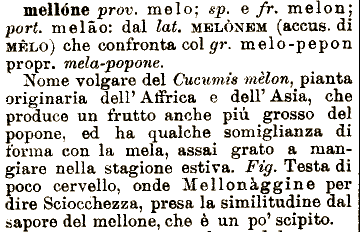 mellóne prov. melo; sp. e fr. melon;
port. melão: dal lat. MELÒNEM (accus. di
MÈLO) che confronta col gr. melo-pepon
propr. mela-popone.
Nome volgare del Cucumis mèlon, pianta
originaria dell' Affrica e dell' Asia, che
produce un frutto anche più grosso del
popone, ed ha qualche somiglianza di
forma con la mela, assai grato a man-
giare nella stagione estiva. Fig. Testa di
poco cervello, onde Mellonàggine per
dire Sciocchezza, presa la similitudine dal
sapore del mellone, che è un po' scipito.